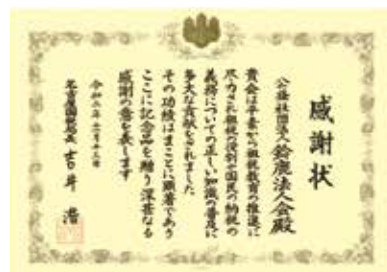 感謝状
公益社団法人鈴鹿法人会殿
貴会は平素から租税教育の推進に
尽力され租税の役割や国民の納税の
義務についての正しい知識の普及に
多大な貢献をされました
その功績はまことに顕著であり
ここに記念品を贈り深甚なる
感謝の意を表します
名古屋国税局長 吉井 浩